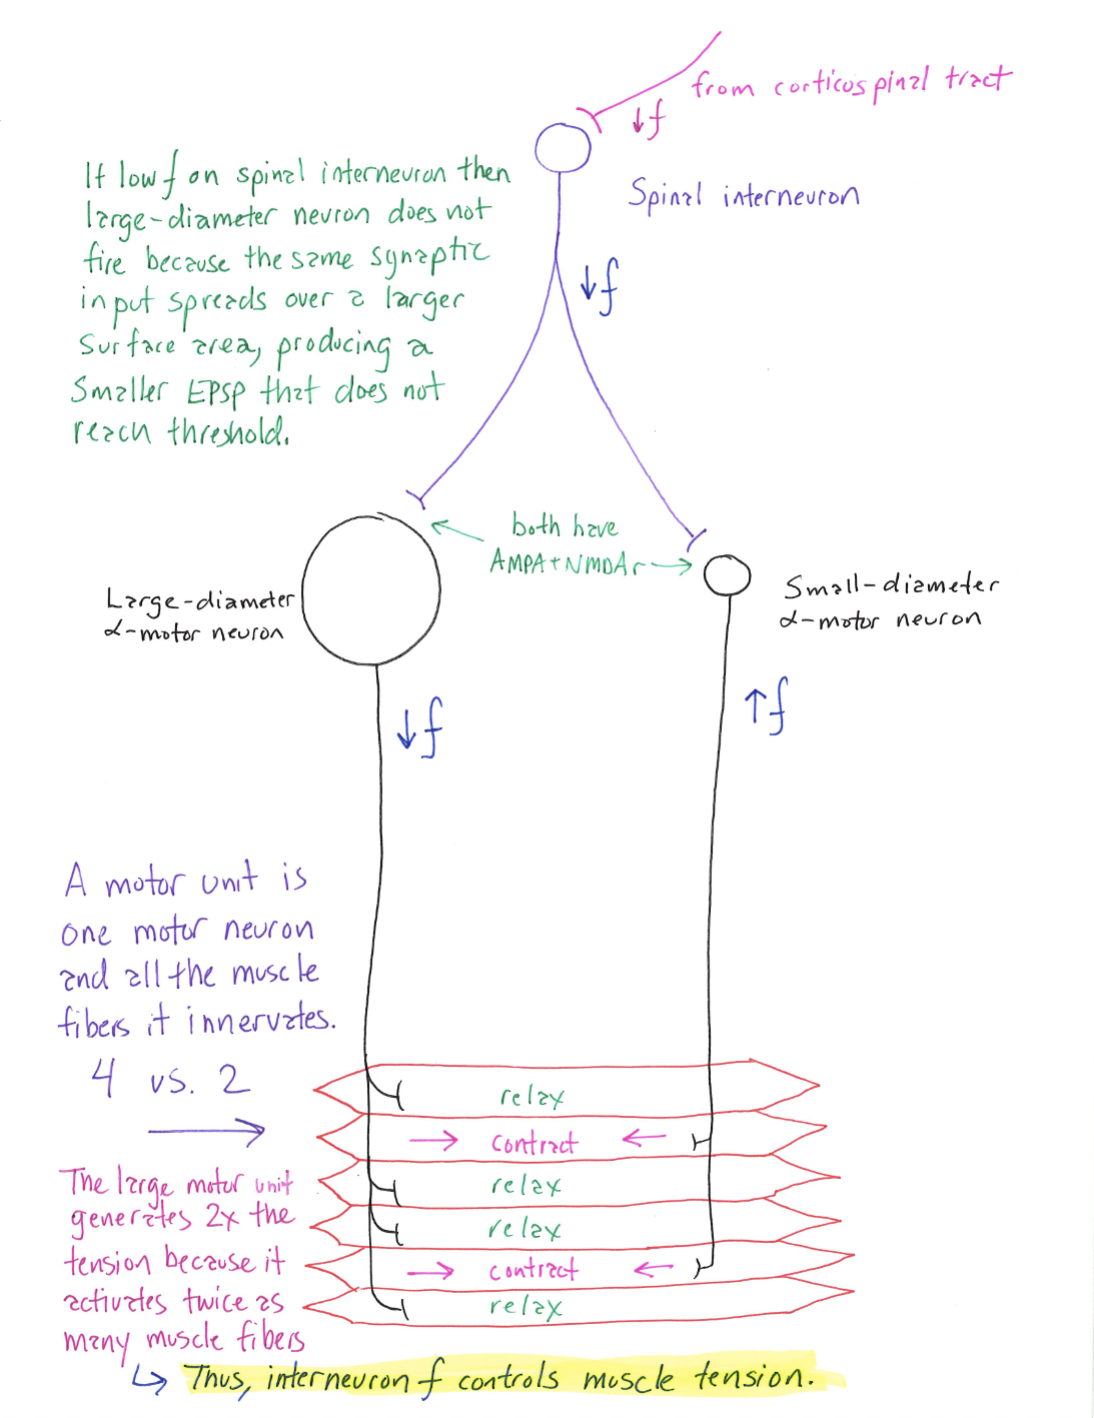 from corticospinal tract
↓f
Spinal interneuron
If low f on spinal interneuron then
large-diameter neuron does not
fire because the same synaptic
input spreads over a larger
surface area, producing a
smaller EPSP that does not
reach threshold.
↓f
both have
AMPA+NMDAr
Large-diameter
α-motor neuron
Small-diameter
α-motor neuron
↓f
↑f
A motor unit is
one motor neuron
and all the muscle
fibers it innervates.
4 vs. 2
The large motor unit
generates 2x the
tension because it
activates twice as
many muscle fibers
relax
→ contract ←
relax
relax
→ contract ←
relax
↳ Thus, interneuron f controls muscle tension.